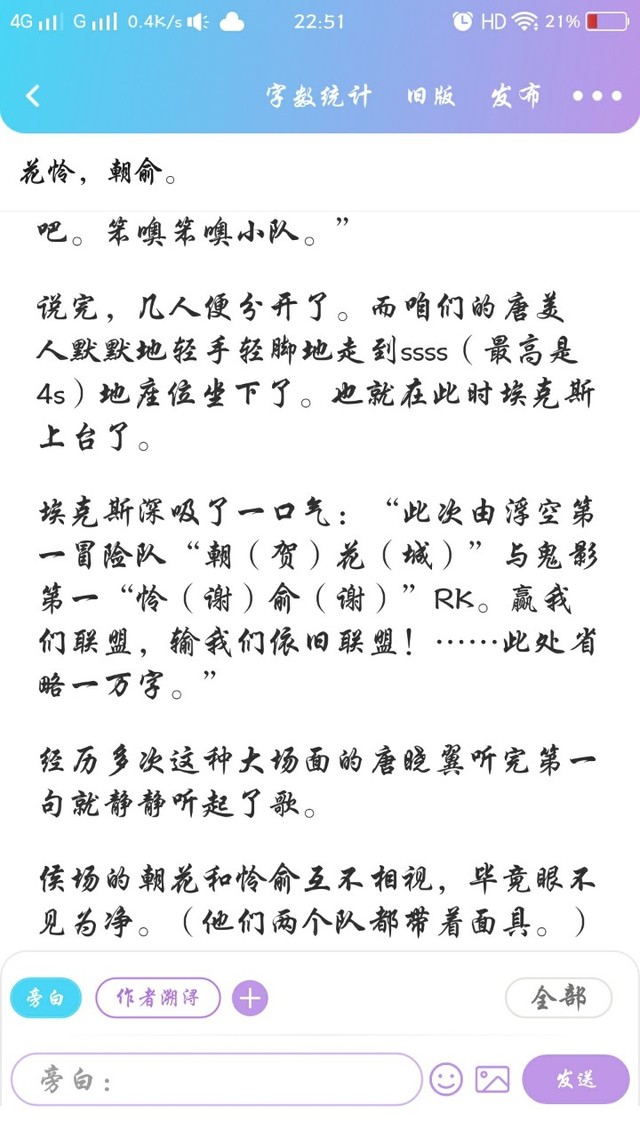 4G G 0.4K/s 22:51 HD 21%
字数统计 旧版 发布
花怜，朝俞。
吧。笨噢笨噢小队。”
说完，几人便分开了。而咱们的唐美
人默默地轻手轻脚地走到ssss（最高是
4s）地座位坐下了。也就在此时埃克斯
上台了。
埃克斯深吸了一口气：“此次由浮空第
一冒险队“朝（贺）花（城）”与鬼影
第一“怜（谢）俞（谢）”RK。赢我
们联盟，输我们依旧联盟！……此处省
略一万字。”
经历多次这种大场面的唐晓翼听完第一
句就静静听起了歌。
侯场的朝花和怜俞互不相视，毕竟眼不
见为净。（他们两个队都带着面具。）
旁白 作者溯浔 全部
旁白： 发送